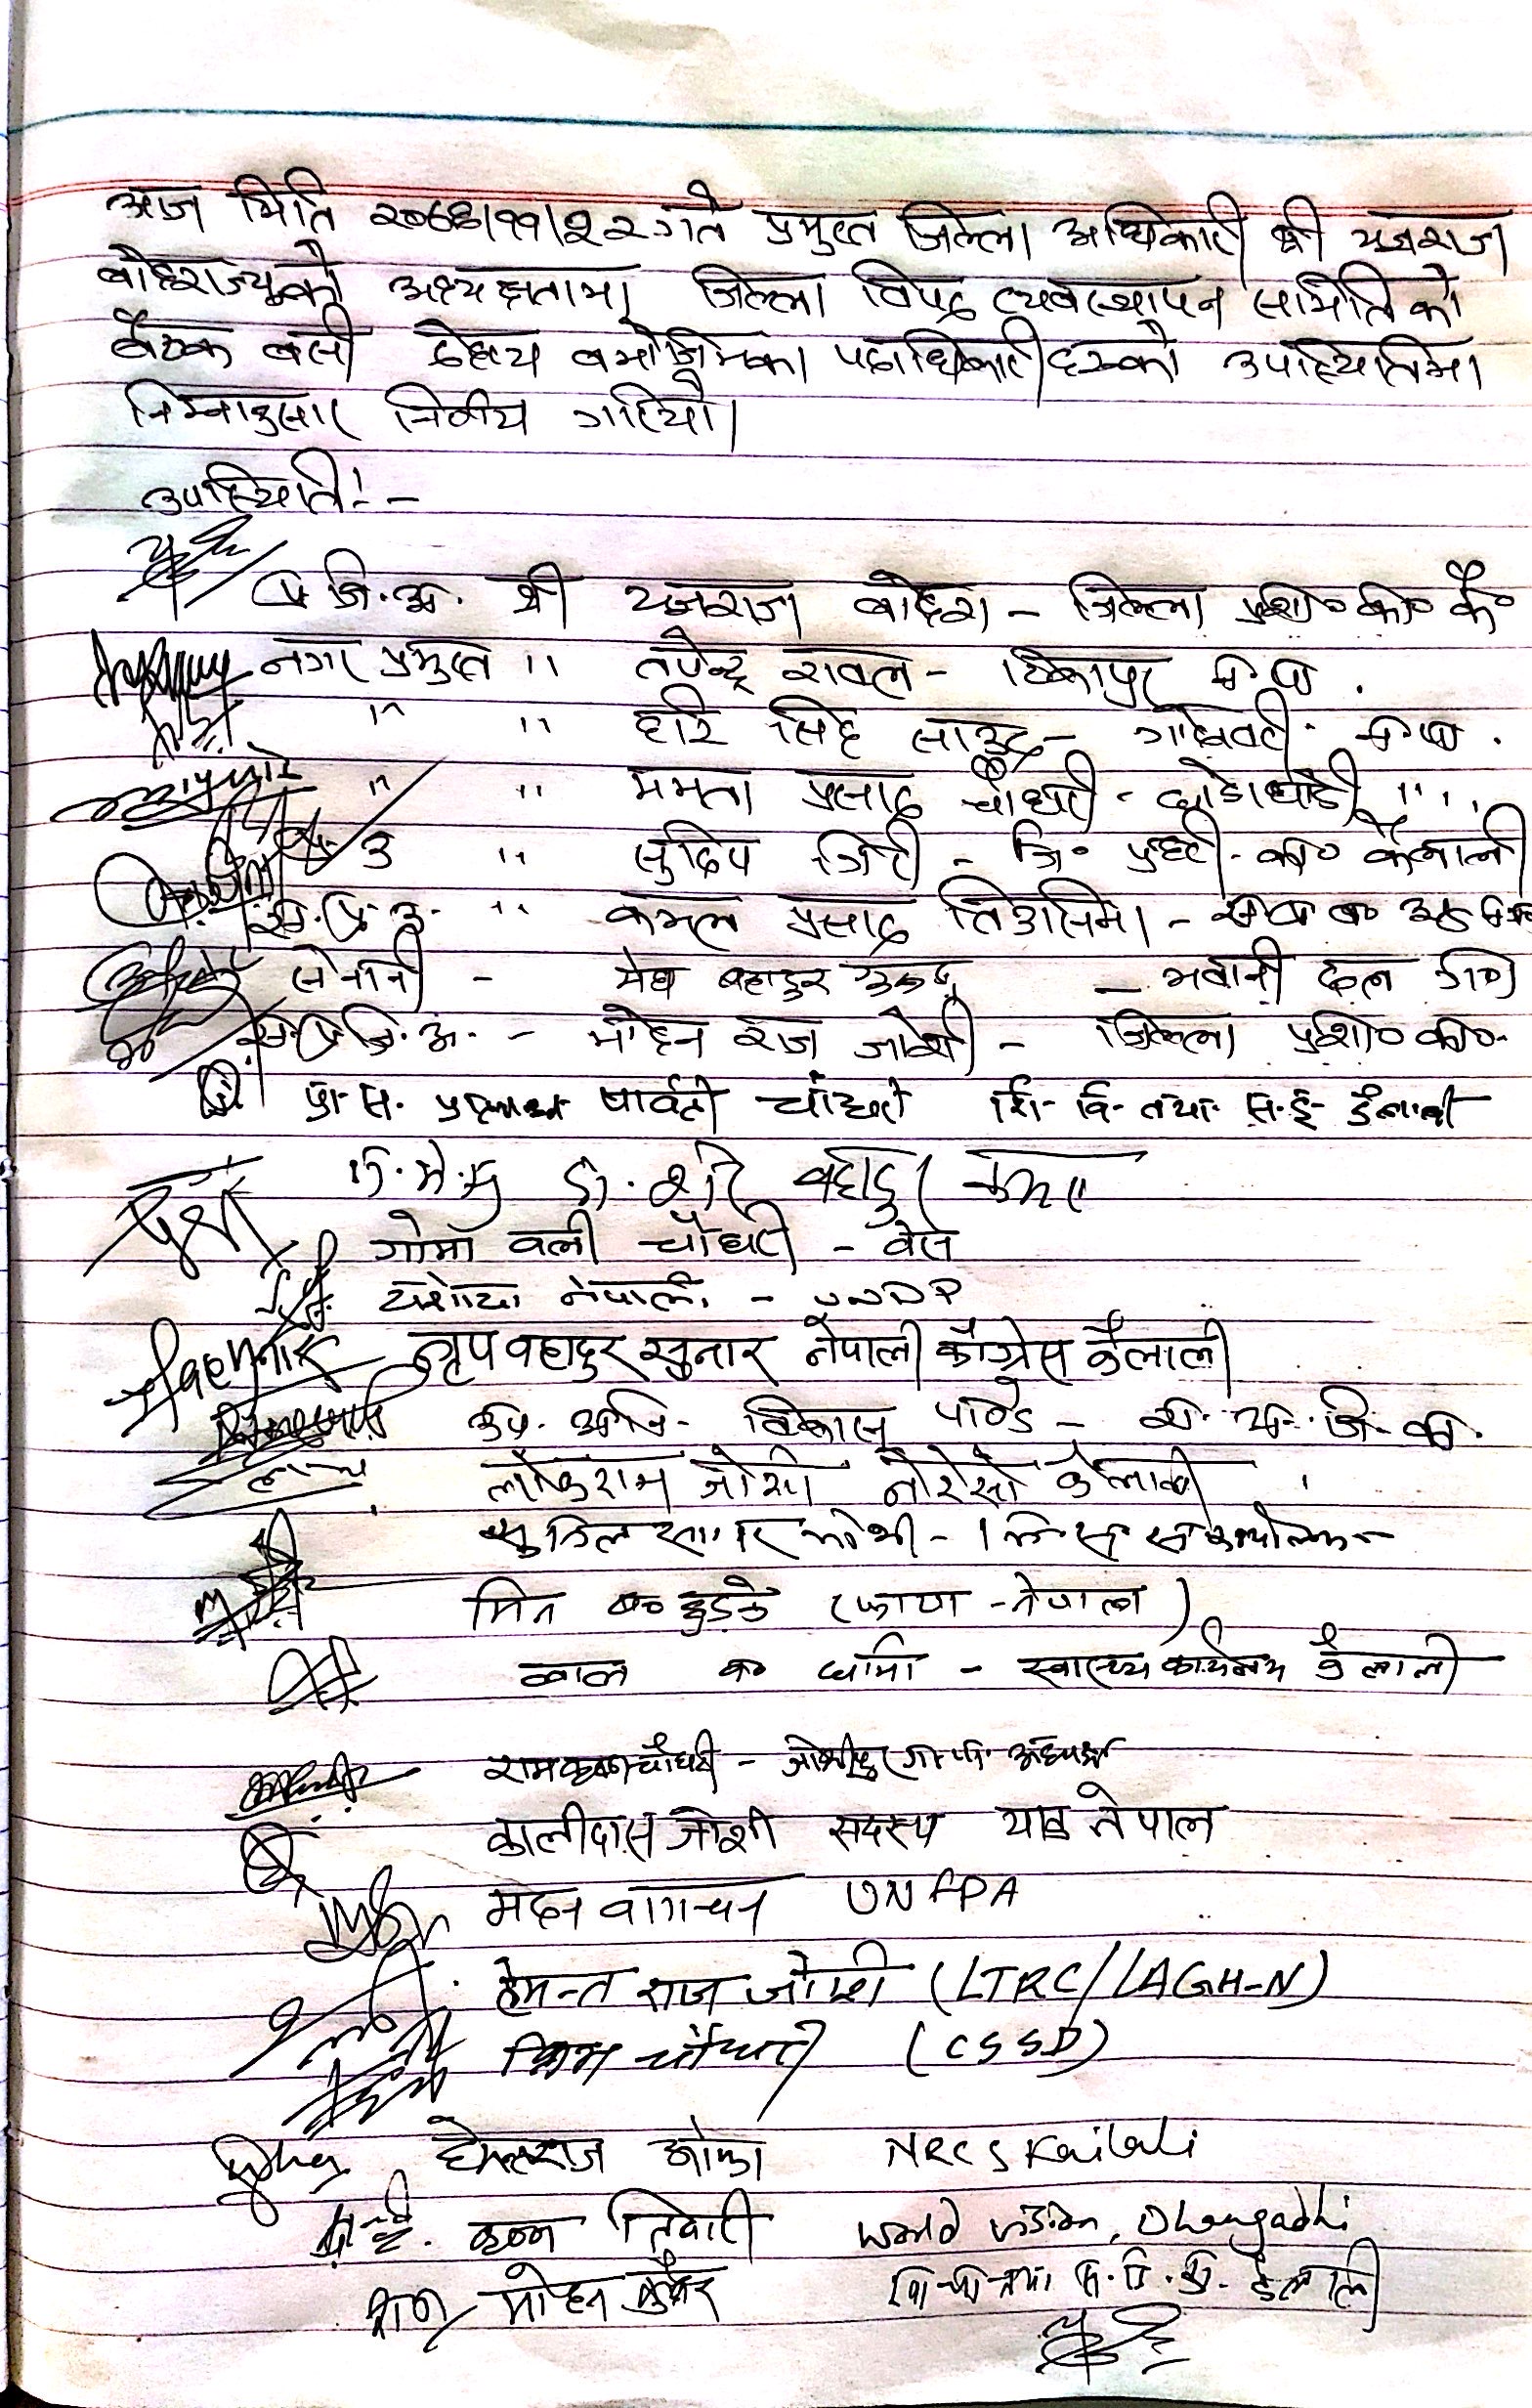 आज मिति २०७६।११।२२ गते प्रमुख जिल्ला अधिकारी श्री यज्ञराज
बोहराज्यूको अध्यक्षतामा जिल्ला विपद व्यवस्थापन समितिको
बैठक बसी देहाय बमोजिमका पदाधिकारीहरुको उपस्थितिमा
निम्नानुसार निर्णय गरियो।
उपस्थिती:-
प्र.जि.अ. श्री यज्ञराज बोहरा - जिल्ला प्रशा० का० कै०
नगर प्रमुख " तपेन्द्र रावल - टिकापुर न.पा.
" " हरि सिंह साउद - गोदावरी न.पा.
" " ममता प्रसाद चौधरी - घोडाघोडी " "
प्र. उ " सुदिप गिरी - जि० प्रहरी का० कैलाली
" कमल प्रसाद तिमसिना -
सेनानी - मेघ बहादुर - भवानी दल गण
स.प्र.जि.अ. - मोहन राज जोशी - जिल्ला प्रशा० का०
प्रा.स. पार्वती चौधरी शि. वि. तथा स.ई. कैलाली
डा. शेर बहादुर
गोमा वली चौधरी - बेस
यशोदा नेपाली - UNDP
नृप वहादुर सुनार नेपाली काँग्रेस कैलाली
विकास पाण्डे - रा. अ. जि. का.
लोकराज जोशी कैलाली
मित ब० (फाया - नेपाल)
लाल ब० धामी - स्वास्थ्य कार्यालय कैलाली
रामकृष्ण चौधरी - जोशीपुर गा.पा. अध्यक्ष
कालीदास जोशी सदस्य याड नेपाल
मदन UNFPA
हेमन्त राज जोशी (LTRC/LAGH-N)
चौधरी (CSSD)
ओझा NRCS Kailali
कृष्ण तिवारी World Vision, Dhangadhi
मोहन कुँवर कैलाली